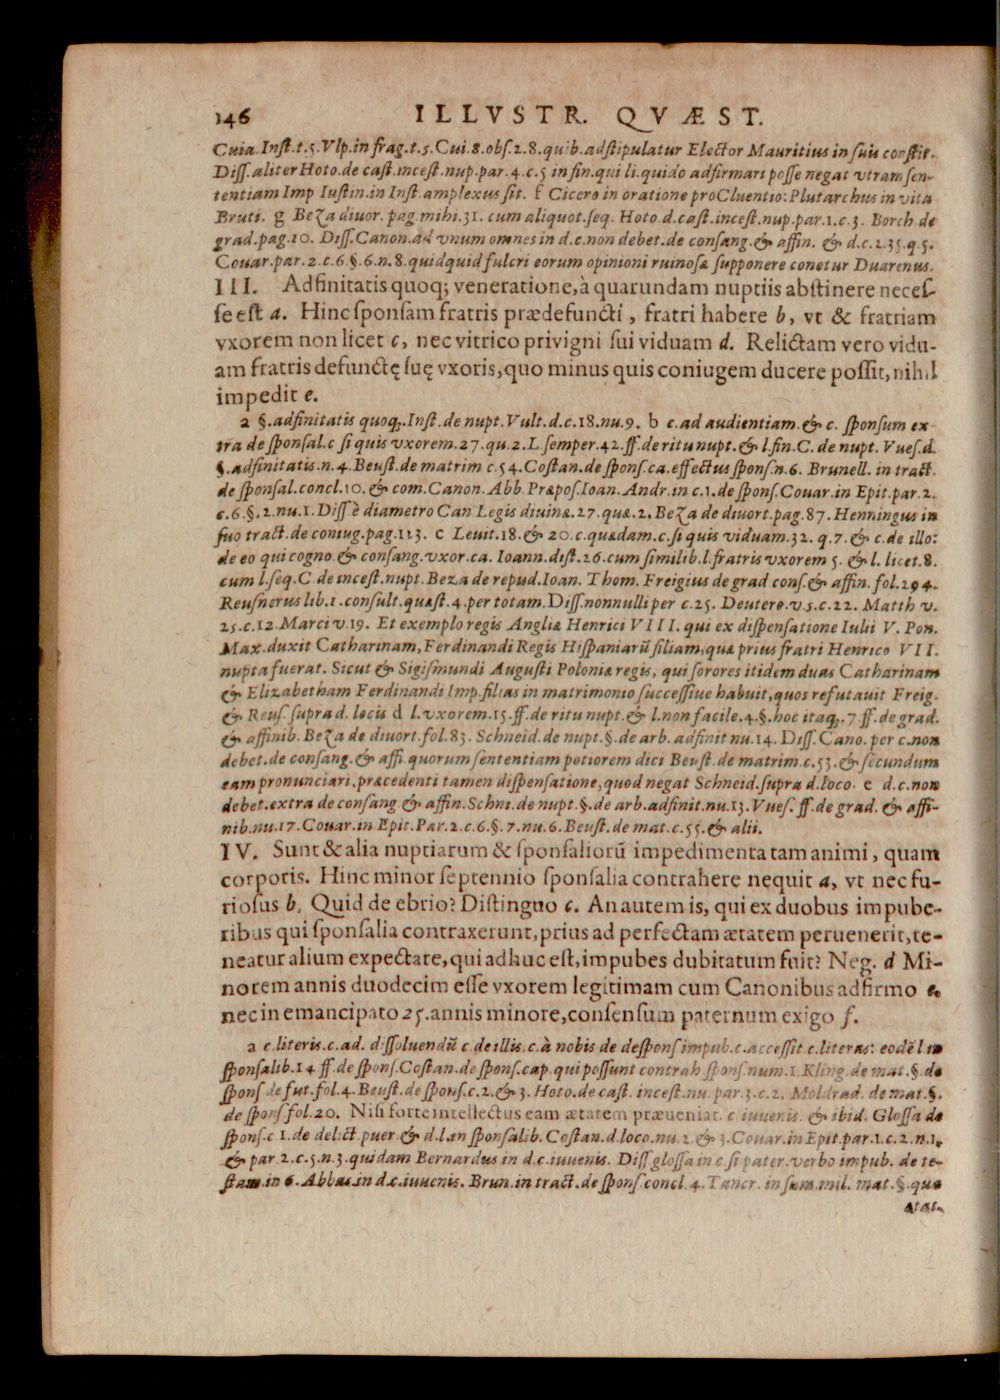 146 ILLVSTR. QVÆST.
Cuia.Inst.t.5.Vlp.in frag.t.5.Cui.8.obs.2.8.quib.adstipulatur Elector Mauritius in suis constit.
Diss.aliter Hoto.de cast.incest.nup.par.4.c.5 in fin.qui li.quido adfirmari posse negat vtram sen-
tentiam Imp Iustin.in Inst.amplexus sit. f Cicero in oratione pro Cluentio: Plutarchus in vita
Bruti. g Beza diuor. pag.mihi.31. cum aliquot.seq. Hoto.d.cast.incest.nup.par.1.c.3. Borch.de
grad.pag.10. Diss.Canon.ad vnum omnes in d.c.non debet.de consang.& affin. & d.c.2.35.q.5.
Couar.par.2.c.6.§.6.n.8.quidquid fulcri eorum opinioni ruinosæ supponere conetur Duarenus.
III. Adfinitatis quoq; veneratione,à quarundam nuptiis abstinere neces-
se est a. Hinc sponsam fratris prædefuncti, fratri habere b, vt & fratriam
vxorem non licet c, nec vitrico privigni sui viduam d. Relictam vero vidu-
am fratris defunctę suę vxoris,quo minus quis coniugem ducere possit,nihil
impedit e.
a §.adfinitatis quoq;.Inst.de nupt.Vult.d.c.18.nu.9. b c.ad audientiam.& c. sponsum ex-
tra de sponsal.c si quis vxorem.27.qu.2.L.semper.42.ff.de ritu nupt.& l.fin.C. de nupt. Vues.d.
§.adfinitatis.n.4.Beust.de matrim c.54.Costan.de spons.ca.effectus spons.n.6. Brunell. in tract.
de sponsal.concl.10.& com.Canon.Abb Præpos.Ioan.Andr.in c.1.de spons.Couar.in Epit.par.2.
c.6.§.2.nu.1.Diss è diametro Can Legis diuinæ.27.quæ.2.Beza de diuort.pag.87.Henningus in
suo tract.de coniug.pag.113. c Leuit.18.& 20.c.quædam.c.si quis viduam.32. q.7.& c.de illo:
de eo qui cogno.& consang.vxor.ca. Ioann.dist.26.cum similib.l.fratris vxorem 5. & l. licet.8.
cum l.seq.C de incest.nupt.Beza de repud.Ioan. Thom. Freigius de grad cons.& affin.fol.294.
Reusnerus lib.1.consult.quæst.4.per totam.Diss.nonnulli per c.25. Deutero.v.5.c.22. Matth v.
25.c.12.Marci v.19. Et exemplo regis Angliæ Henrici VIII. qui ex dispensatione Iulii V. Pon.
Max.duxit Catharinam,Ferdinandi Regis Hispaniarū filiam,quæ prius fratri Henrico VII.
nupta fuerat. Sicut & Sigismundi Augusti Poloniæ regis, qui sorores itidem duas Catharinam
& Elizabetham Ferdinandi Imp.filias in matrimonio successiue habuit,quos refutauit Freig.
& Reus.supra d. locis d l.vxorem.15.ff.de ritu nupt.& l.non facile.4.§.hoc itaq;.7 ff.de grad.
& affinib.Beza de diuort.fol.83. Schneid.de nupt.§.de arb. adfinit nu.14. Diss.Cano.per c.non
debet.de consang.& affi.quorum sententiam potiorem dici Beust.de matrim.c.53.& secundum
eam pronunciari,præcedenti tamen dispensatione,quod negat Schneid.supra d.loco. e d.c.non
debet.extra de consang & affin.Schni.de nupt.§.de arb.adfinit.nu.13.Vues.ff.de grad. & affi-
nib.nu.17.Couar.in Epit.Par.2.c.6.§.7.nu.6.Beust.de mat.c.55.& alii.
IV. Sunt & alia nuptiarum & sponsaliorū impedimenta tam animi, quam
corporis. Hinc minor septennio sponsalia contrahere nequit a, vt nec fu-
riosus b. Quid de ebrio? Distinguo c. An autem is, qui ex duobus impube-
ribus qui sponsalia contraxerunt,prius ad perfectam ætatem peruenerit,te-
neatur alium expectare,qui adhuc est,impubes dubitatum fuit? Neg. d Mi-
norem annis duodecim esse vxorem legitimam cum Canonibus adfirmo e.
nec in emancipato 25.annis minore,consensum paternum exigo f.
a c.literis.c.ad. dissoluendū c.de illis.c.à nobis de despons impub.c.accessit c.literas: eodē l in
sponsalib.14 ff.de spons.Costan.de spons.cap.qui possunt contrah spons.num.1.Kling.de mat.§.de
spons de fut.fol.4.Beust.de spons.c.2.& 3.Hoto.de cast. incest.nu.par.3.c.2. Moldrad. de mat.§.
de spons fol.20. Nisi forte intellectus eam ætatem præueniat. c iuuenis. & ibid. Glossa de
spons.c 1.de delict.puer & d.l.in sponsalib.Costan.d.loco.nu.2 & 3.Couar.in Epit.par.1.c.2.n.1.
& par 2.c.5.n.3.quidam Bernardus in d.c.iuuenis. Diss glossa in c.si pater.verbo impub. de te-
stam.in 6.Abbas.in d.c.iuuenis. Brun.in tract.de spons concl.4.Tancr. in sum.mil. mat.§.que
ætat.